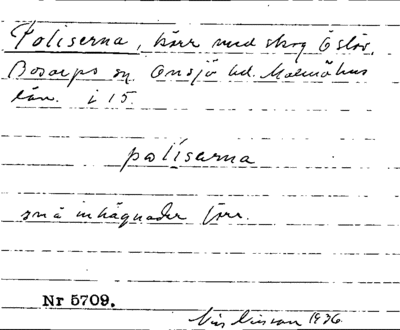 Poliserna, kärr med skog Ö slöv.
Bosarps sn. Onsjö hd. Malmöhus
län. i 15.
poliserna
små inhägnader förr.
Nr 5709.
Nils Nilsson 1936.